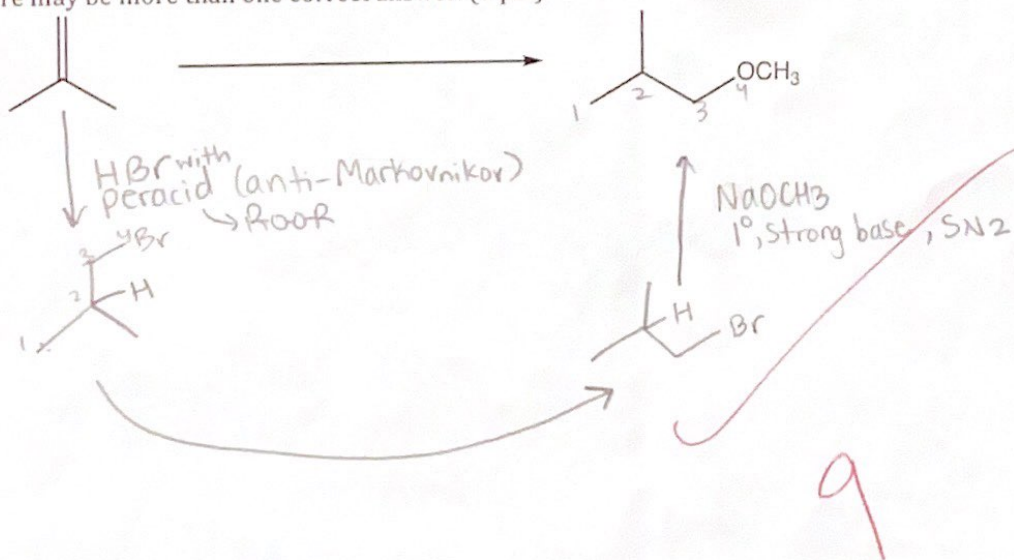 re may be more than one correct answer. (
OCH3
1
2
3
4
HBr with
peracid (anti-Markovnikov)
→ROOR
NaOCH3
1°, Strong base, SN2
4
Br
3
2
H
1
H
Br
9